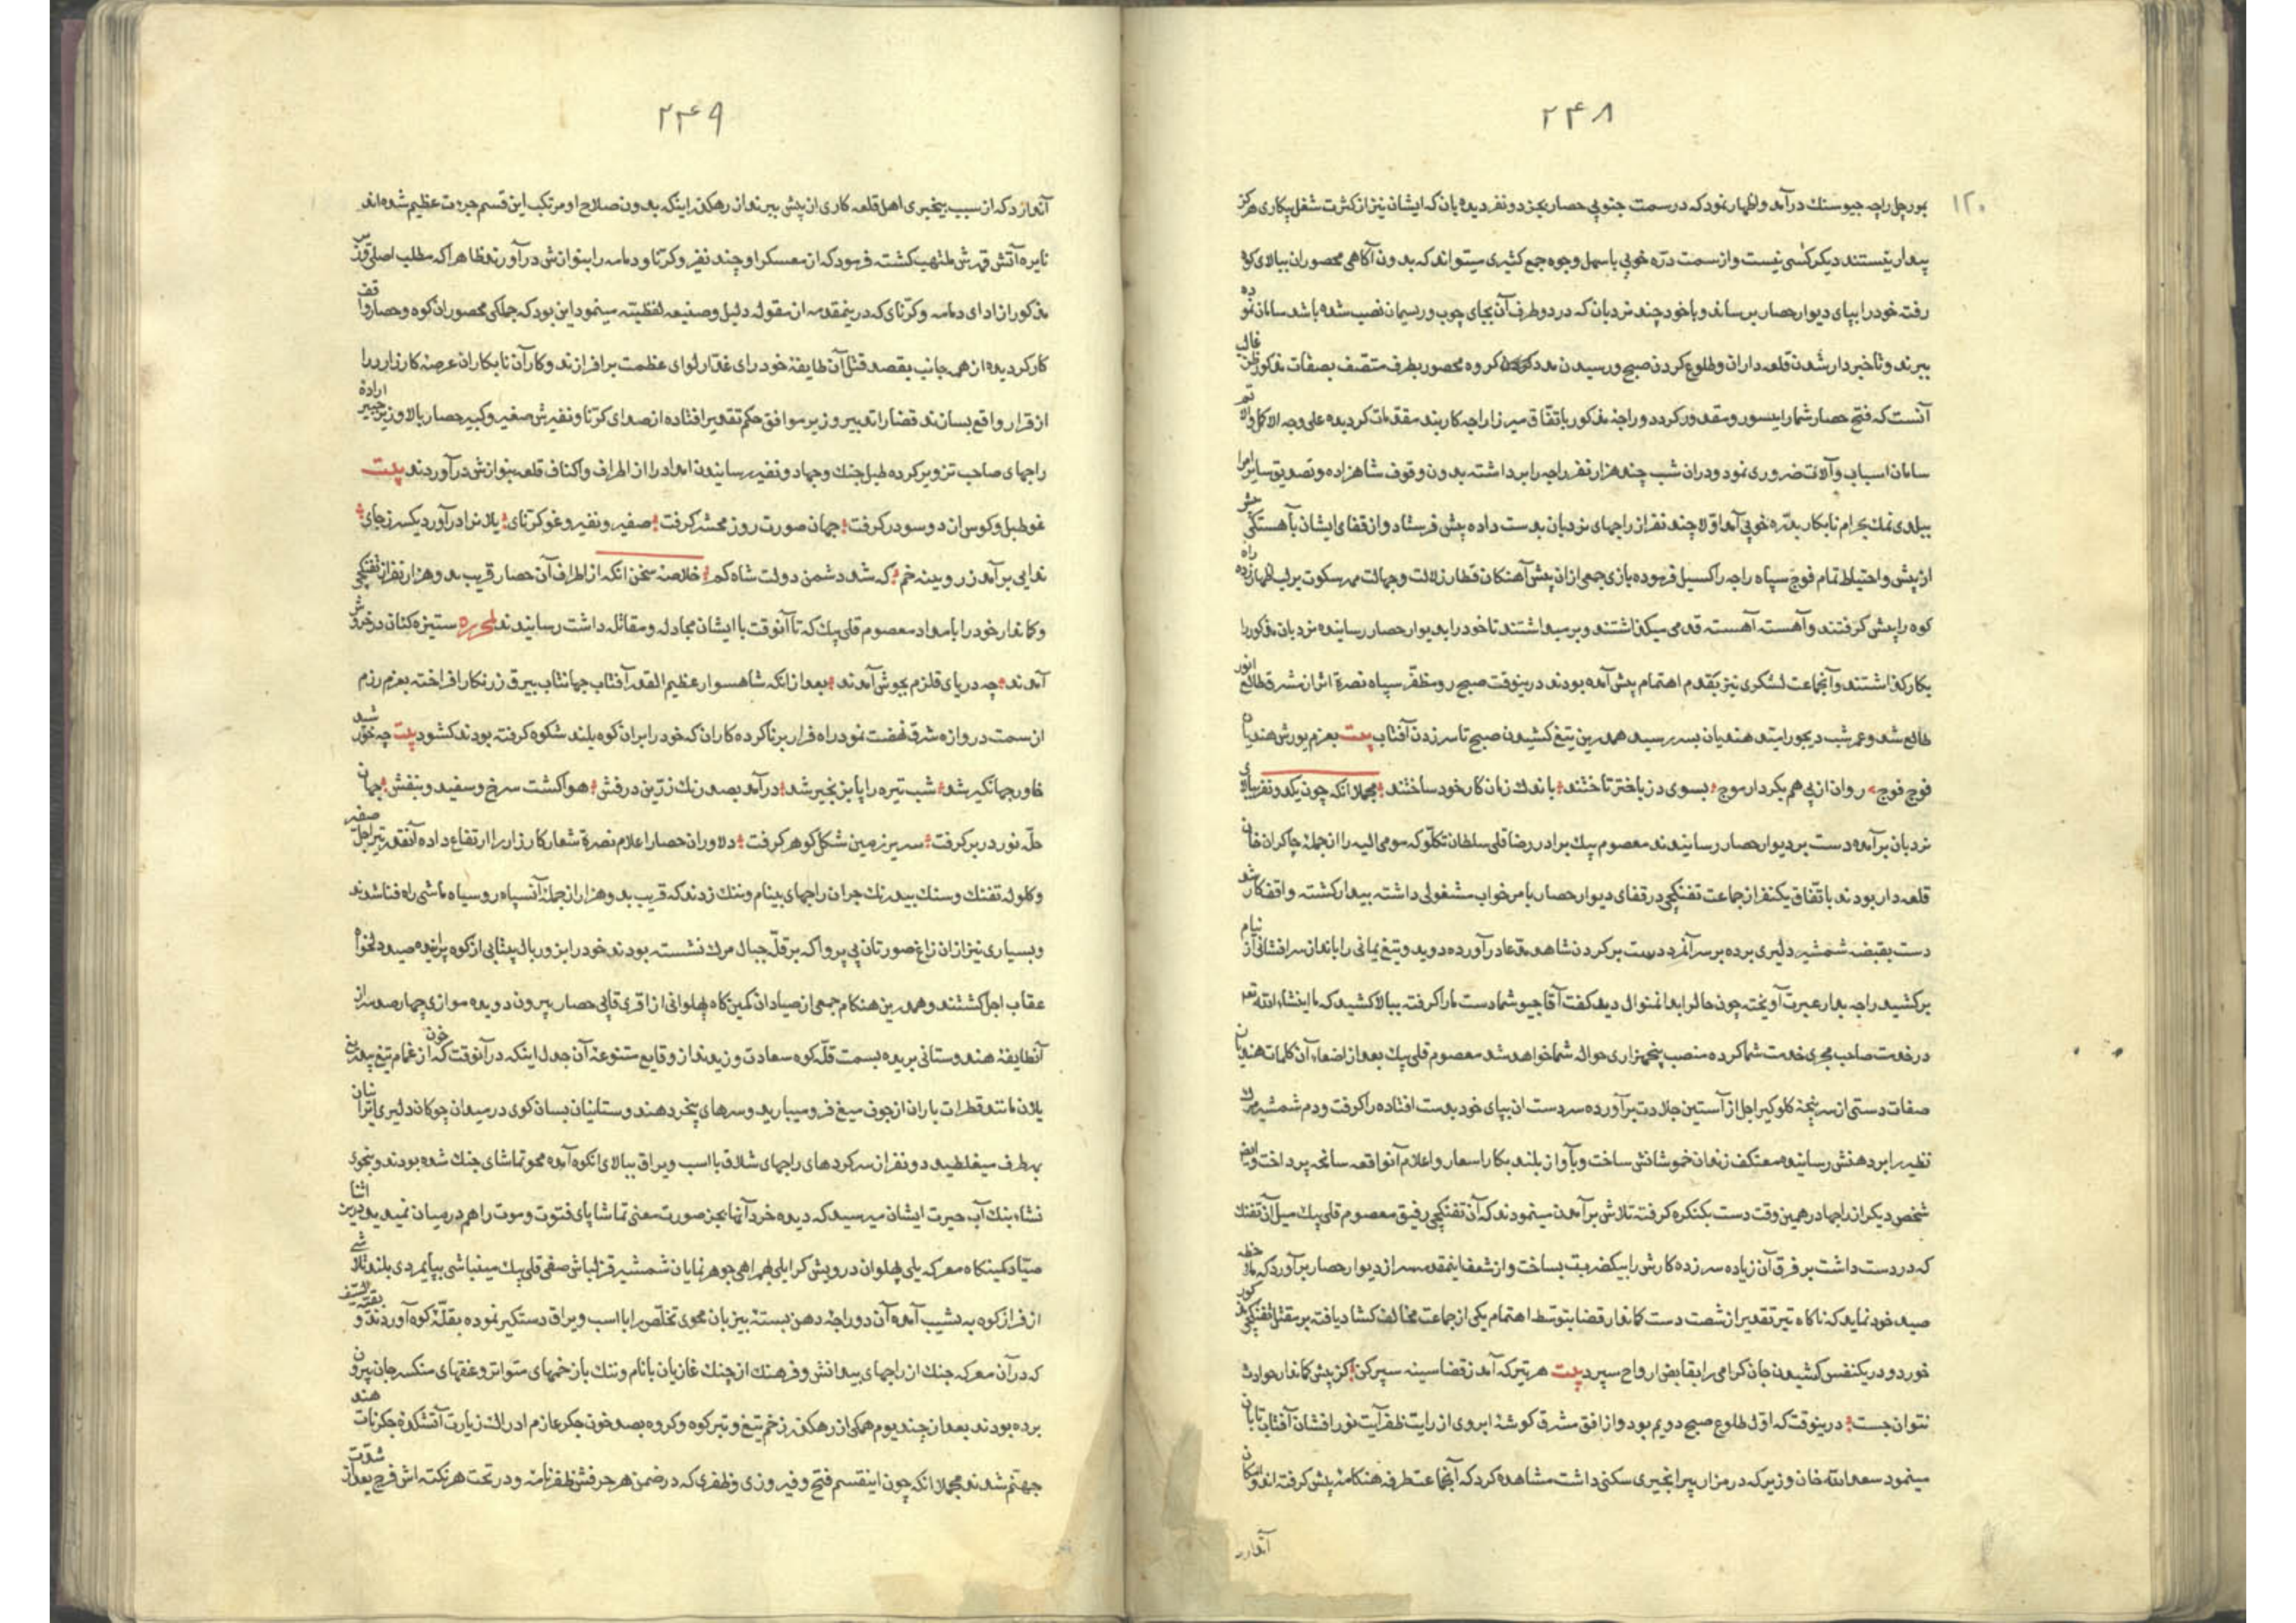 ۲۴۸
۱۲۰
بمورچل راجه جیوسنك درآمد واظهار نمود که در سمت جنوبی حصار بجز دو نفر دیده بان که ایشان نیز از کثرت شغل بیکاری هرکز
بیدار نیستند دیکر کسی نیست واز سمت درّه خوبی باسهل وجوه جمع کثیری میتواند که بدون آکاهی محصوران ببالای کوه
رفته خود را بپای دیوار حصار برساند وباخود چند نردبان که در دو طرف آن بجای چوب وریسمان نصب شده باشد سامان نموده
ببرند وتا خبردار شدن قلعه داران وطلوع کردن صبح ورسیدن مدد کروه محصور بطرف متصف بصفات مذکور ظن غالب
آنست که فتح حصار شما را میسور ومقدور کردد وراجه مذکور باتفاق میرزا راجه کاربند مقدمات کردیده علی وجه الاکمل
سامان اسباب وآلات ضروری نمود ودران شب چند هزار نفر راجه را برداشته بدون وقوف شاهزاده وتصدیق سایر امرا
ببلدی نمك بحرام نابکار بدرّه خوبی آمد اوّلا چند نفر از راجهای نردبان بدست داده پیش فرستاد واز قفای ایشان بآهستکی
از پیش واحتیاط تمام فوج سپاه راجه را کسیل فرموده بازی جمعی ازان پیش آهنکان قطار زلالت وجهالت مهر سکوت بر لب اظهار زده راه
کوه را پیش کرفتند وآهسته آهسته قدمی میکذاشتند وبرمیداشتند تا خود را بدیوار حصار رسانیده نردبان مذکور را
بکار کذاشتند وآنجماعت لشکری نیز بقدم اهتمام پیش آمده بودند درینوقت صبح رو مظفّر سپاه نصرة اثر از مشرق طالع انور
طالع شد وعمر شب دیجور ایتد هندیان بسر رسید همدرین تیغ کشیدن صبح تا سر زدن آفتاب بیت بعزم یورش هندیان
فوج فوج روان از پی هم بکردار موج بسوی دز باختر تاختند باندك زمان کار خود ساختند مجملا انکه چون یکدو نفر ببالای
نردبان برآمده دست بر دیوار حصار رسانیدند معصوم بیك برادر رضا قلی سلطان تکلّو که مومی الیه را از جملۀ چاکران خان
قلعه دار بودند باتّفاق یکنفر از جماعت تفنکچی در قفای دیوار حصار بامر خواب مشغولی داشته بیدار کشته واقف کار شد
دست بقبضه شمشیر دلیری برده بر سر آنمرد درست برکرد نشاهد مدّعا درآورده دوید وتیغ یمانی را بانداز سر افشانی از نیام
برکشید راجه بدار عبرت آویخته چون حال را بدانمنوال دید کفت آقا جیو شما دست ما را کرفته ببالا کشید که ما انشاءالله تع
در خدمت صاحب مجری خدمت شما کرده منصب پنجهزاری حواله شما خواهد شد معصوم قلی بیك بعد از اصغاء آن کلمات هندیان
صفات دستی از سر پنجه کلوکیر اجل از آستین جلادت برآورده سر دست ان بپای خود بدست افتاده را کرفت ودم شمشیر مرك
نظیر را بر دهنش رسانیده معتکف زندان خموشانش ساخت وبآواز بلند بکار اسعار واعلام آنواقعه سانحه پرداخت وایض
شخص دیکر از راجها در همین وقت دست بکنکره کرفته تلاش برآمدن مینمودند که آن تفنکچی رفیق معصوم قلی بیك میل آن تفنك
که در دست داشت بر فرق آن زیاده سر زده کارش را بیکضربت بساخت واز شعف اینمقدمه سر از دیوار حصار برآورد که ملاحظه
صید خود نماید که ناکاه تیر تقدیر از شصت دست کماندار قضا بتوسط اهتمام یکی از جماعت مخالف کشاد یافته بر مقتل تفنکچی
خورد ودر یکنفس کشیدن جان کرامی را بقابض ارواح سپرد بیت هر تیر که آمد ز قضا سینه سپر کن کز پیش کماندار حوادث
نتوان جست درینوقت که اوّل طلوع صبح دویم بود واز افق مشرق کوشۀ ابروی از رایت ظفر آیت نورافشان آفتاب تابان
مینمود سعد الله خان وزیر که در مزار پیرابخیری سکنی داشت مشاهده کرد که آنجماعت طرفه هنکامۀ پیش کرفته اند
آنمدارد
۲۴۹
که از سبب بیخبری اهل قلعه کاری از پیش ببرند از رهکذر اینکه بدون صلاح او مرتکب این قسم جرءت عظیم شده اند
نایره آتش قهرش ملتهب کشته فرمود که از معسکر او چند نفیر وکرنا ودمامه را بنوازش درآورند ظاهرا که مطلب اصلی وزیر
مذکور از ادای دمامه وکرّنای که درینمقدمه از مقوله دلیل وصنیعه لفظیته مینمود این بود که جملکی محصوران کوه وحصار واقف
کار کردیده از همه جانب بقصد قتل آن طایفه خود رای غدّار لوای عظمت برافرازند وکار آن نابکاران عرصۀ کارزار را
از قرار واقع بسازند قضا را تدبیر وزیر موافق حکم تقدیر افتاده از صدای کرنا ونفیرش صغیر وکبیر حصار بالا وزیر خبیر اراده
راجهای صاحب تزویر کرده طبل جنك وجهاد ونفیر رسانیدن امداد را از اطراف واکناف قلعه بنوازش درآوردند بیت
غو طبل وکوس ان دو سو در کرفت جهان صورت روز محشر کرفت صفیر ونفیر وغو کرّنای یلانرا درآورد یکسر ز جای
ندایی برآمد ز رویینه خم که شد دشمن دولت شاه کم خلاصه سخن انکه از اطراف آن حصار قریب بدو هزار نفر از تفنکچی
وکماندار خود را بامداد معصوم قلی بیك که تا آنوقت با ایشان مجادله ومقاتله داشت رسانیدند ستیزه کنان در خروش
آمدند چه دریای قلزم بجوش آمدند بعد ازانکه شاهسوار عظیم القدر آفتاب جهانتاب بیرق زرنکار افراخته بعزم رزم
از سمت دروازه شرق نهضت نمود راه فرار بر ناکرده کاران که خود را بران کوه بلند شکوه کرفته بودند کشود بیت چه خورشید
خاور جهانکیر شد شب تیره را پا بزنجیر شد درآمد بصد رنك زرّین درفش هوا کشت سرخ وسفید وبنفش جهان
حلّه نور در بر کرفت سریر زمین شکل کوهر کرفت دلاوران حصار اعلام نصرة شعار کارزار را ارتفاع داده آنقدر تیر اجل صفیر
وکلوله تفنك وسنك بیدرنك بران راجهای بینام وننك زدند که قریب بدو هزار از جملۀ آنسپاه رو سیاه ماشی راه فنا شدند
وبسیاری نیز ازان زاغ صورتان بی پروا که بر قلّه جبال مرك نشسته بودند خود را بزور بال بیتابی از کوه پرانیده صید دلخواه
عقاب اجل کشتند وهمدرین هنکام جمعی از صیادان کمین کاه پهلوانی از اقری قاپی حصار بیرون دویده موازی چهار صد سر از
آنطایفۀ هندوستانی بریده بسمت قلّه کوه سعادت وزیدند از وقایع متنوعۀ آن جدل اینکه در آنوقت که خون از غمام تیغ بیدریغ
یلان مانند قطرات باران از جوف میغ فرو میبارید وسرهای پنجر دهندوستانیان بسان کوی در میدان چوکان دلیری ایرانیان
بهر طرف میغلطید دو نفر از سرکردهای راجهای شلاق با اسب ویراق ببالای انکوه آمده محو تماشای جنك شده بودند وبنحوی
نشاء بنك آب حیرت ایشان میرسید که دیده خرد آنها بجز صورت معنی تماشا پای فتوت وموت را هم در میان نمیدید درین اثنا
صیّاد کمینکاه معرکه یلی پهلوان درویش کرایلی بهمراهی جوهر نمایان شمشیر قزلباش صفی قلی بیك مینباشی بپایمردی بلند تلاشی
از فراز کوه به نشیب آمده آن دو راجۀ دهن بستۀ بیزبان محوی تخلّص را با اسب ویراق دستکیر نموده بقلّۀ کوه آوردند
که در آن معرکه جنك از راجهای بیدانش وفرهنك از چنك غازیان بانام وننك بازخمهای متواتر وعقدهای منکسر جان بیرون
برده بودند بعد از چند یوم همکی از رهکذر زخم تیغ وتبر کوه وکروه بصد خون جکر عازم ادراك زیارت آتشکدۀ جکرنات هند
جهنّم شدند مجملا انکه چون اینقسم فتح وفیروزی وظفری که در ضمن هر حرفش ظفرنامۀ ودر تحت هر نکته اش فرج بعد از شدّت